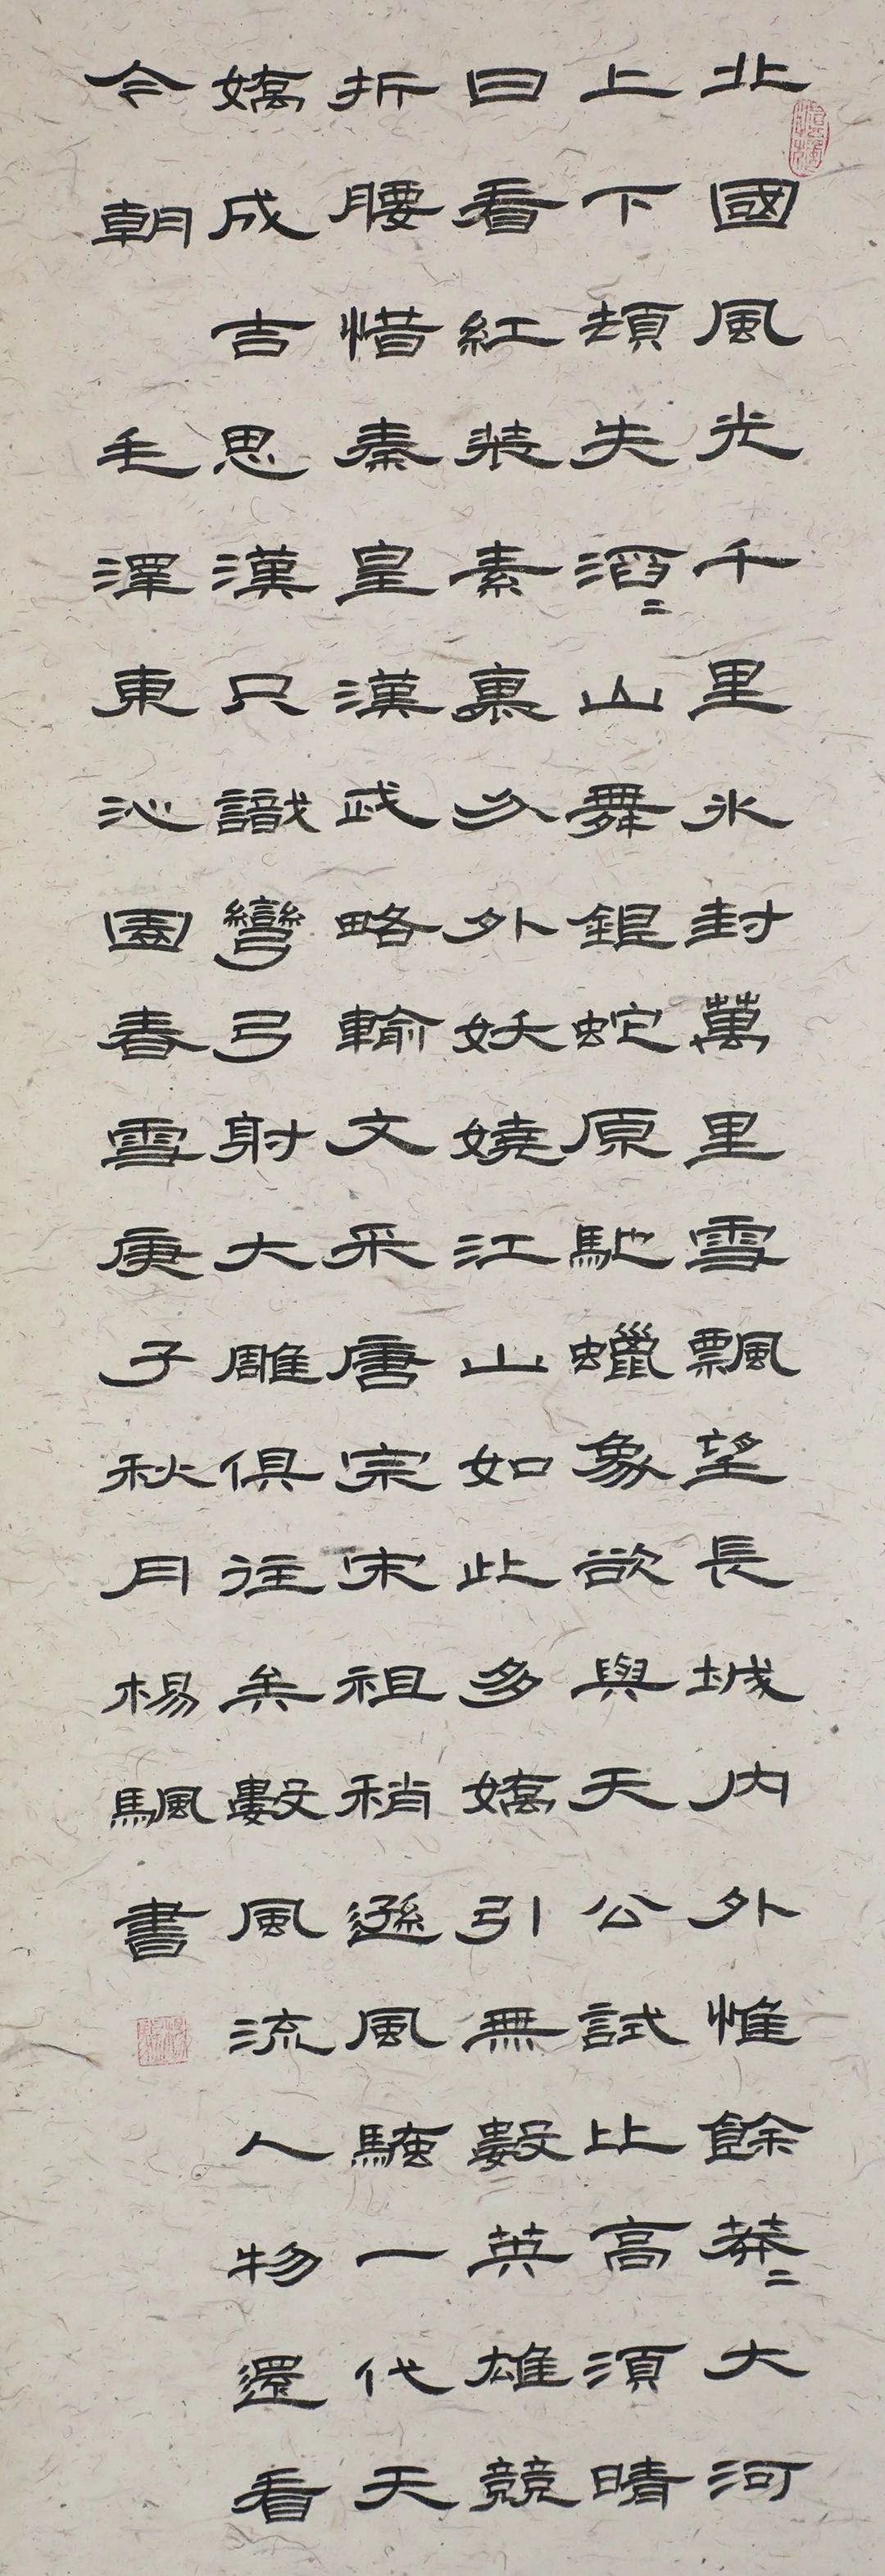 北國風光千里氷封萬里雪飄望長城内外惟餘莽〻大河
上下頓失滔〻山舞銀蛇原馳蠟象欲與天公試比高須晴
日看紅裝素裹分外妖嬈江山如此多嬌引無數英雄競
折腰惜秦皇漢武略輸文采唐宗宋祖稍遜風騷一代天
嬌成吉思漢只識彎弓射大雕俱往矣數風流人物還看
今朝 毛澤東沁園春雪庚子秋月楊颿書